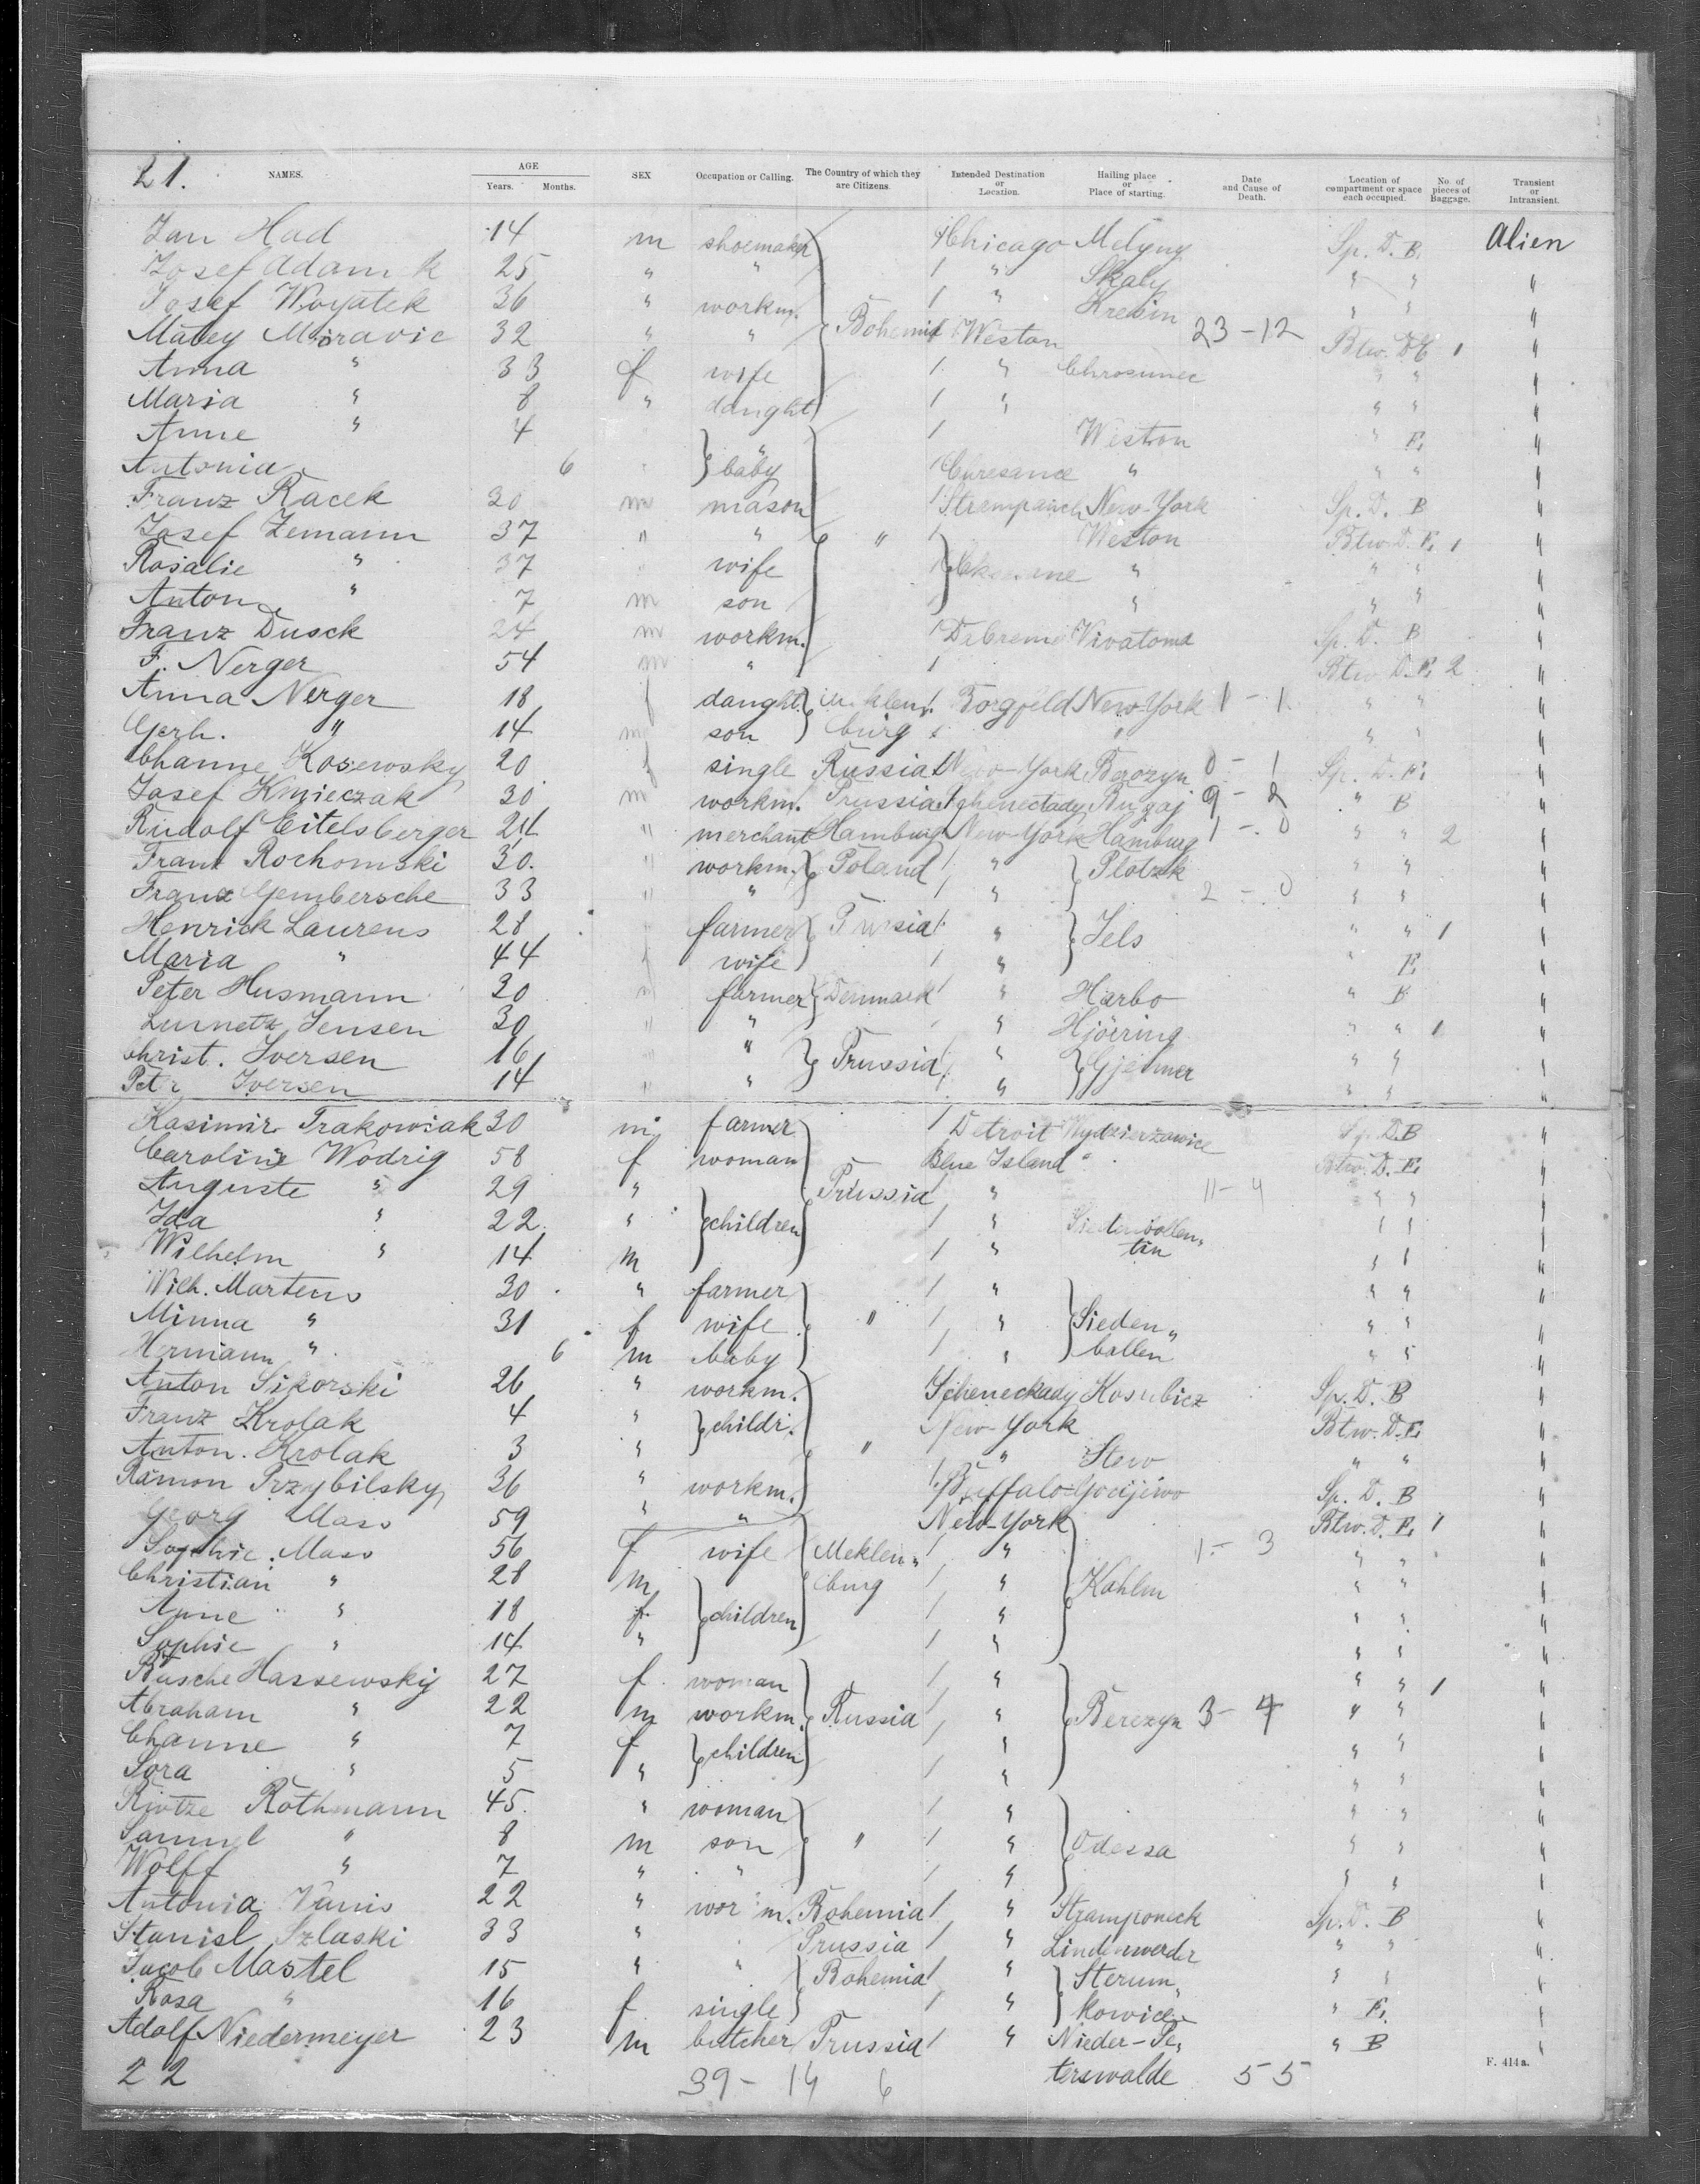 21.
NAMES. AGE Years. Months. SEX Occupation or Calling. The Country of which they are Citizens. Intended Destination or Location. Hailing place or Place of starting. Date and Cause of Death. Location of compartment or space each occupied. No. of pieces of Baggage. Transient or Intransient.
Jan Had 14 m shoemaker Chicago Melyny Sp. D. B. Alien
Josef Adam k 25 " " " Skaly " " "
Josef Woyatek 36 " workm. " " " "
Matey Moravic 32 " " Bohemia Weston 23-12 Btw. D. 1 "
Anna " 33 f wife " Chrosunec " " "
Maria " 8 " daught " " " "
Anne " 4 " Weston " F. "
Antonia 6 baby " " " "
Franz Racek 30 m mason New-York Sp. D. B "
Josef Zemann 37 " " " Weston Btw. D. F. 1 "
Rosalie " 37 wife " " " "
Anton " 7 m son " " " "
Franz Dusek 24 m workm. Sp. D. B "
F. Nerger 54 m " Btw. D. F. 2 "
Anna Nerger 18 f daught. Meklen Torgfeld New-York 1-1. " " "
Gerh. " 14 m son burg " " " "
Channe Kosewsky 20 f single Russia New-York Berozyn 0-1 Sp. D. F. "
Josef Kmieczak 30 m workm. Prussia Schenectady Bugaj " B "
Rudolf Eitelsberger 24 " merchant Hamburg New-York Hamburg 1-0 " " 2 "
Franz Rochomski 30. " workm. Poland " Plotzk " " "
Franz Gembersche 33 " " " 2-0 " " "
Henrick Laurens 28 farmer Prussia " Jels " " 1 "
Maria " 44 f wife " " F. "
Peter Husmann 30 m farmer Denmark " Harbo " B "
Jensen 30 " " " Hjöering " " 1 "
Christ. Iversen 16 " " Prussia " " " "
Petr Iversen 14 " " " " " "
Kasimir Trakowiak 30 m farmer Detroit Wydzierzowice Sp. D. B "
Caroline Wodrig 58 f woman Blue Island " Btw. D. F. "
Auguste " 29 " Prussia " 11-4 " " "
Ida " 22 " children " Siedenbollen" " " "
Wilhelm " 14 m " tin " " "
Wilh. Martens 30 " farmer " " " "
Minna " 31 f wife " " Sieden" " " "
Hermann " 6 m baby " bollen " " "
Anton Sikorski 26 " workm. Scheneckady Kosubicz Sp. D. B "
Franz Krolak 4 " childr. New-York Btw. D. F. "
Anton. Krolak 3 " " " Stew " " "
Ramon Przybilsky 36 " workm. Buffalo Gocijewo Sp. D. B "
Georg Mass 59 " " New-York Btw. D. F. 1 "
Sophie Mass 56 f wife Meklen" " 1-3 " " "
Christian " 28 m burg " Kahlm " " "
Anne " 18 f children " " " "
Sophie " 14 " " " " "
Busche Hassewsky 27 f woman " " " 1 "
Abraham " 22 m workm. Russia " Berezyn 3-4 " " "
Channe " 7 f children " " " "
Sora " 5 " " " " "
Rothmann 45. " woman " " " "
Samuel " 8 m son " " Odessa " " "
Wolff " 7 " " " " " "
Antonia Vanis 22 " workm. Bohemia " Stramponeck Sp. D. B "
Stanisl Szlaski 33 " Prussia " Lindenwerder " " "
Jacob Mastel 15 " " Bohemia " Sterum" " " "
Rosa " 16 f single " kowice " F. "
Adolf Niedermeyer 23 m butcher Prussia " Nieder-Pe" " B "
22 39-14 6 terswalde 55 F. 414 a.